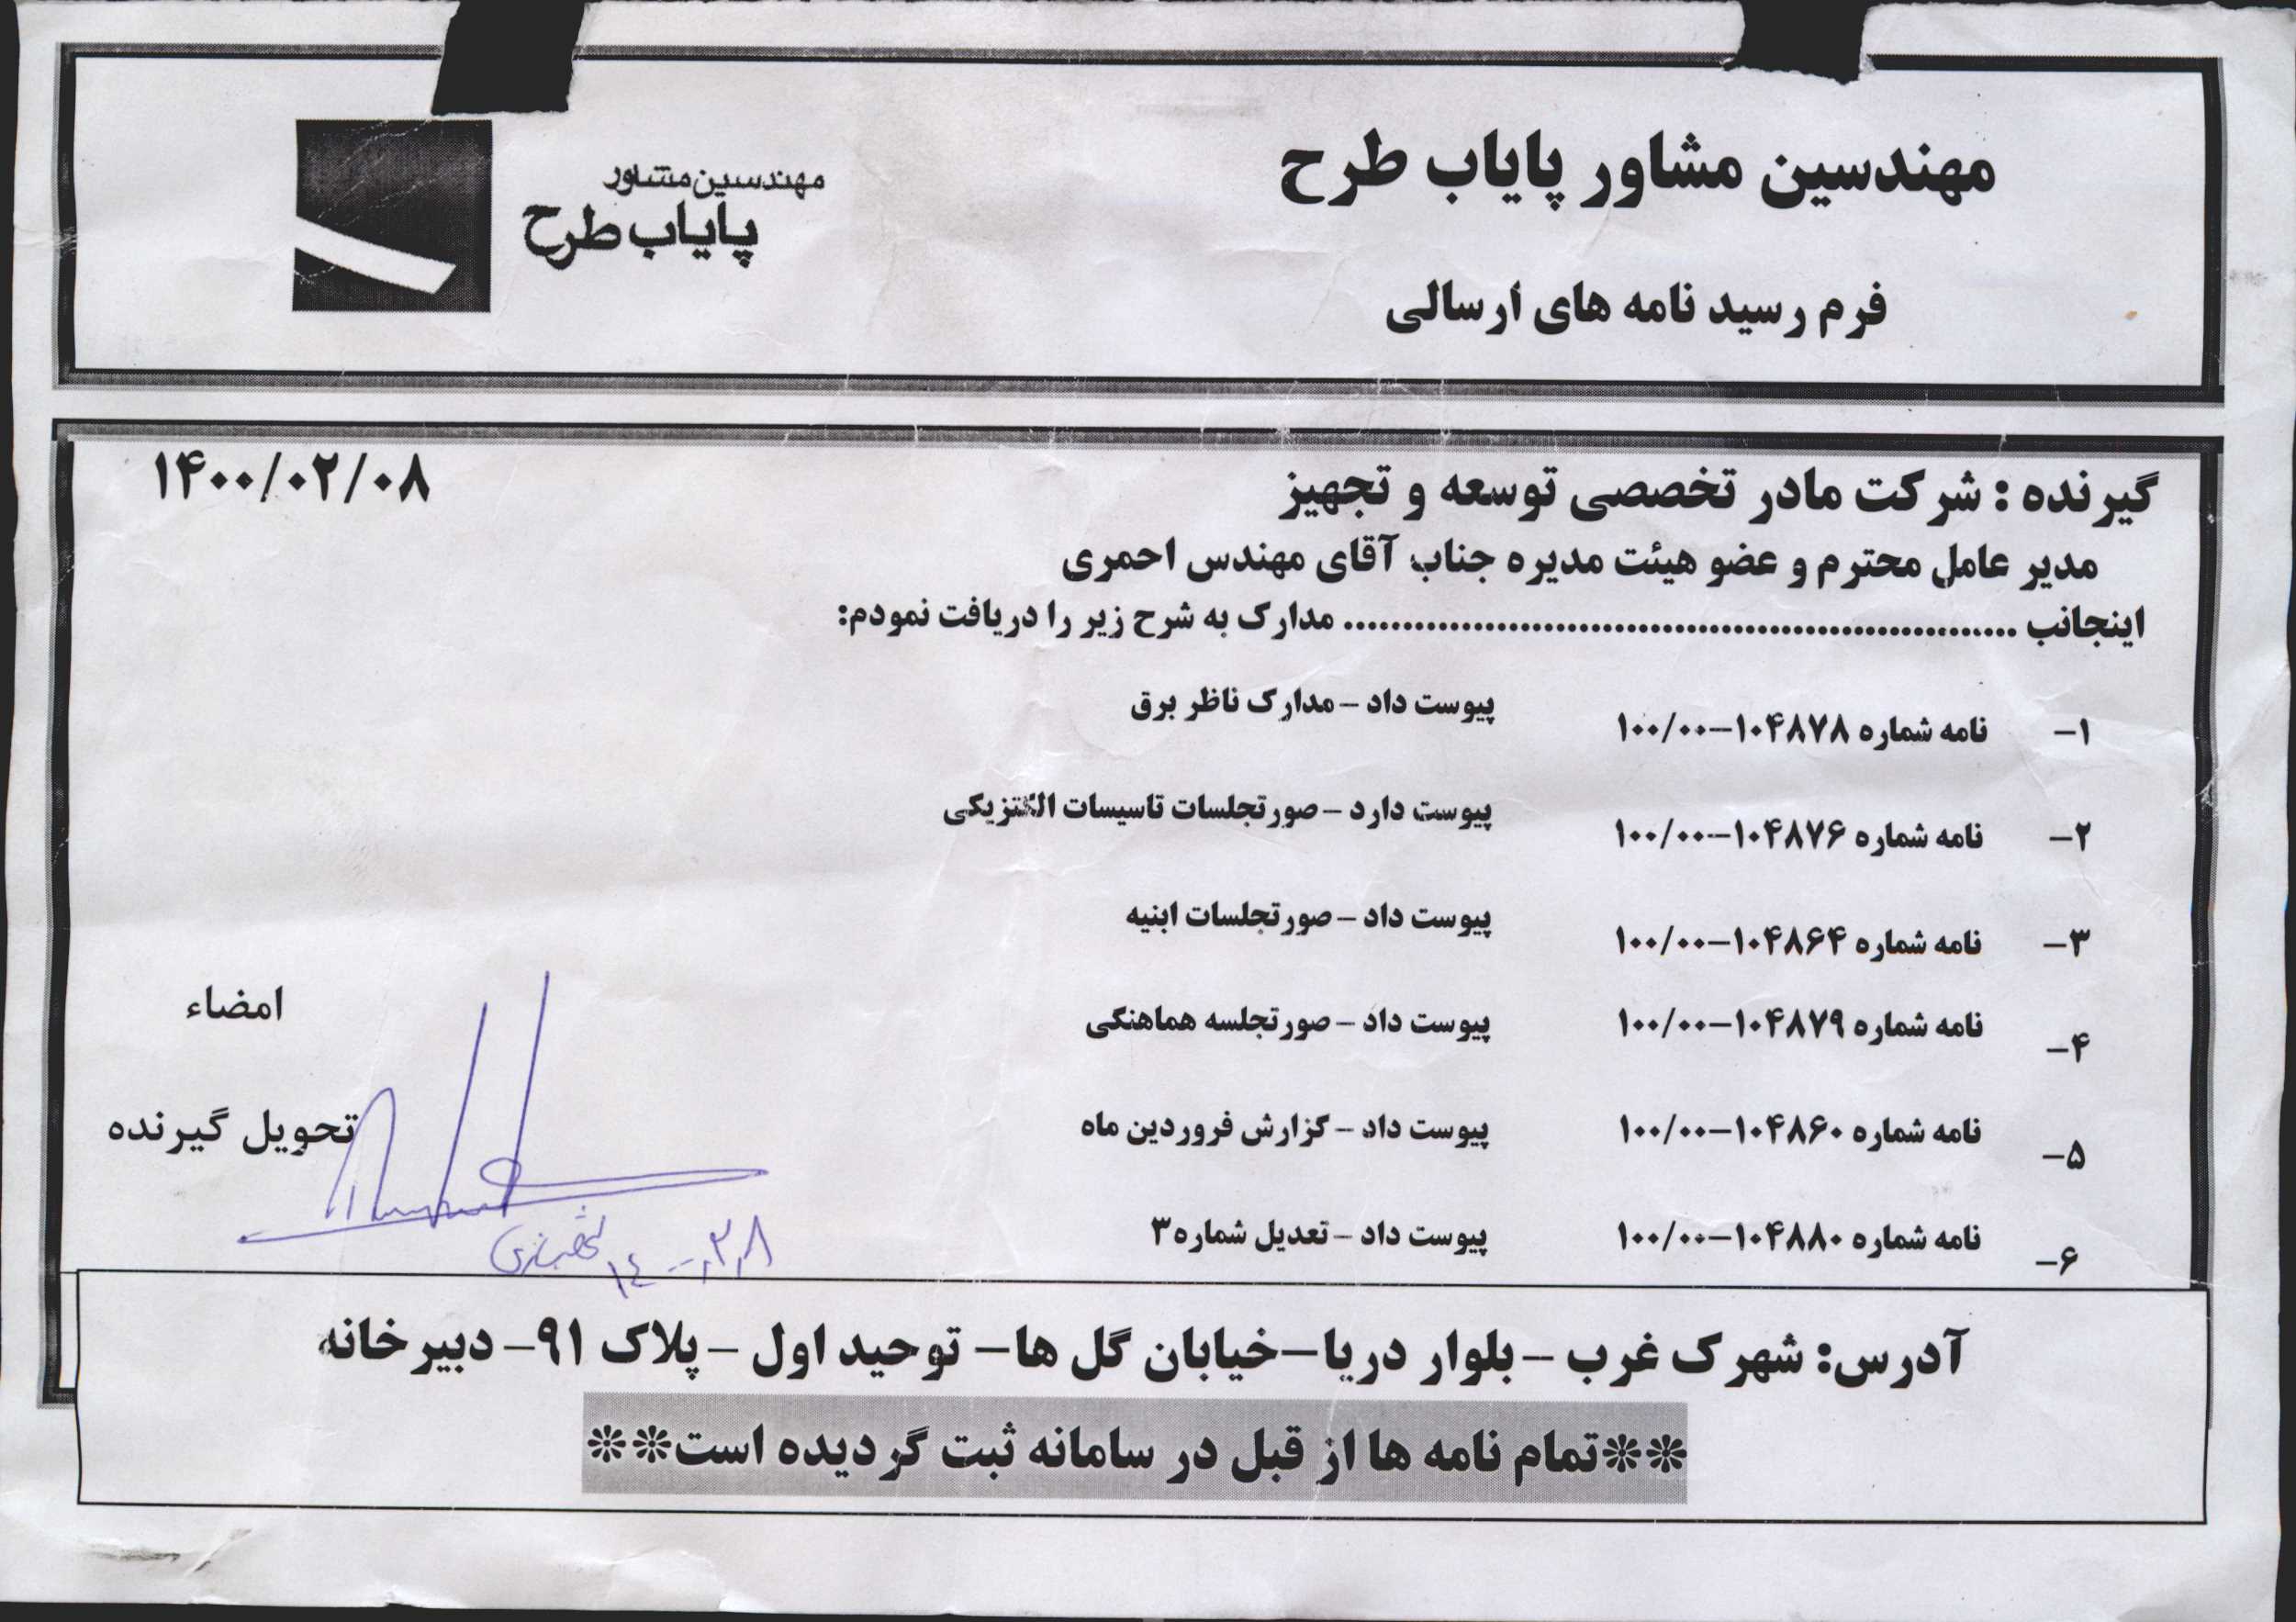 مهندسین مشاور پایاب طرح
مهندسین مشاور
پایاب طرح
فرم رسید نامه های ارسالی
گیرنده : شرکت مادر تخصصی توسعه و تجهیز
۱۴۰۰/۰۲/۰۸
مدیر عامل محترم و عضو هیئت مدیره جناب آقای مهندس احمری
اینجانب ............................................................ مدارک به شرح زیر را دریافت نمودم:
۱- نامه شماره ۱۰۴۸۷۸-۱۰۰/۰۰ پیوست داد - مدارک ناظر برق
۲- نامه شماره ۱۰۴۸۷۶-۱۰۰/۰۰ پیوست دارد - صورتجلسات تاسیسات الکتزیکی
۳- نامه شماره ۱۰۴۸۶۴-۱۰۰/۰۰ پیوست داد - صورتجلسات ابنیه
امضاء
۴- نامه شماره ۱۰۴۸۷۹-۱۰۰/۰۰ پیوست داد - صورتجلسه هماهنگی
۵- نامه شماره ۱۰۴۸۶۰-۱۰۰/۰۰ پیوست داد - گزارش فروردین ماه
تحویل گیرنده
۶- نامه شماره ۱۰۴۸۸۰-۱۰۰/۰۰ پیوست داد - تعدیل شماره۳
۱۴۰۰,۲,۸
آدرس: شهرک غرب - بلوار دریا-خیابان گل ها- توحید اول - پلاک ۹۱- دبیرخانه
**تمام نامه ها از قبل در سامانه ثبت گردیده است**